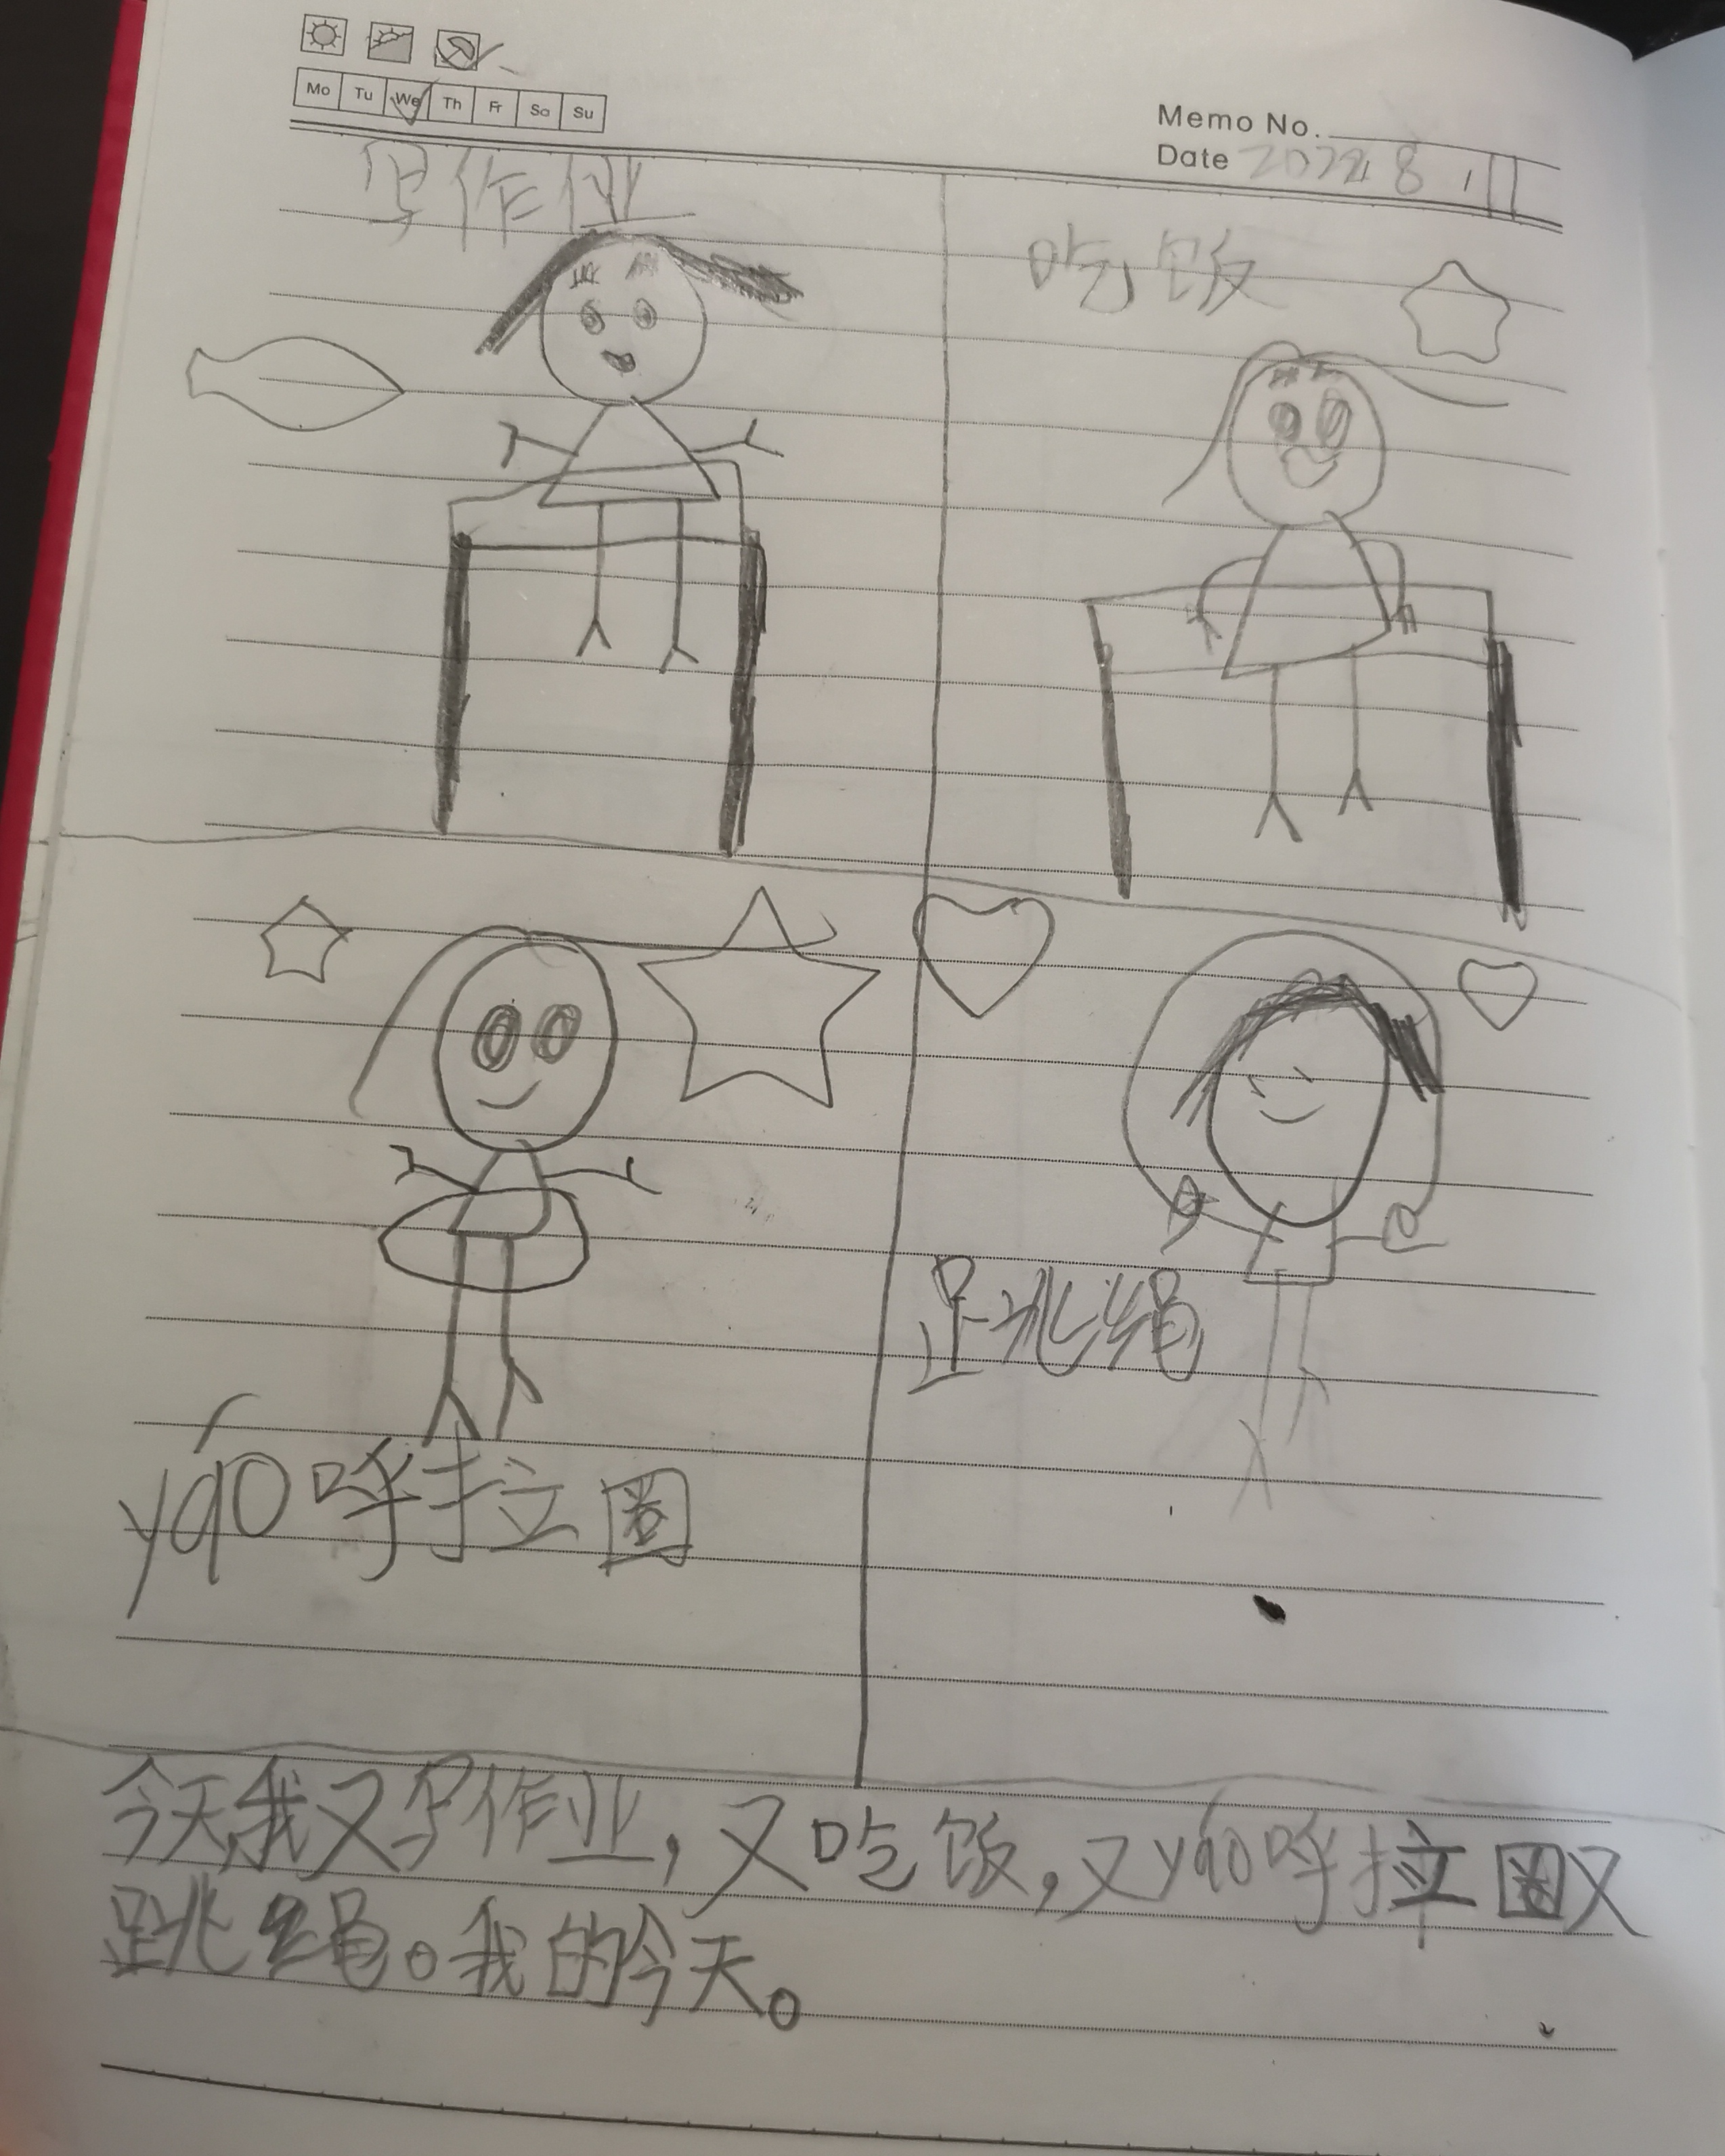 Mo Tu We Th Fr Sa Su
Memo No.
Date 2022 8 11
写作业
吃饭
跳绳
yáo呼拉圈
今天我又写作业，又吃饭，又yáo呼拉圈又
跳绳。我的今天。